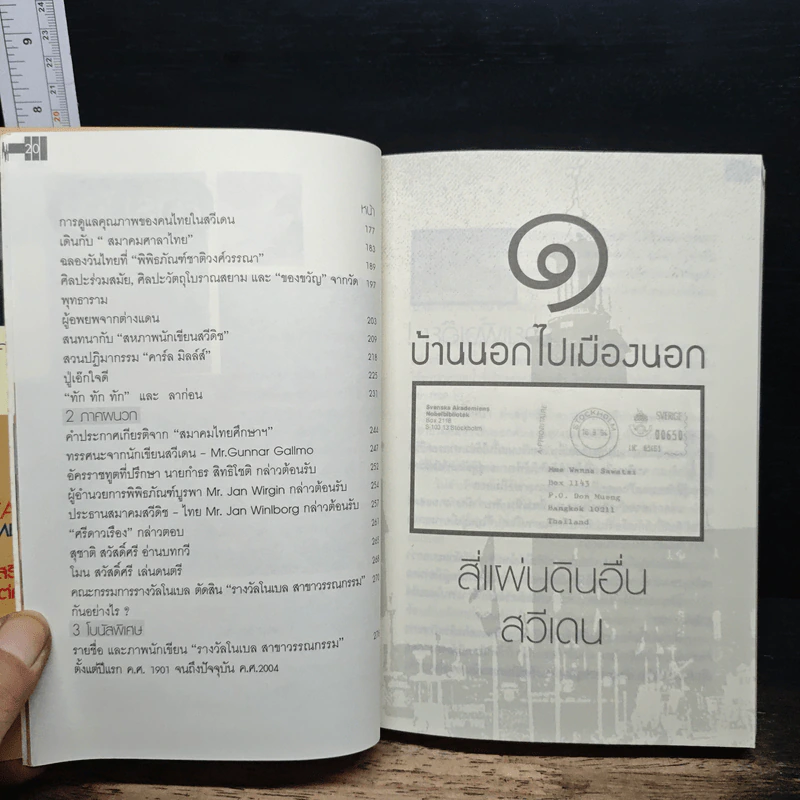 9
8
24
23
21
20
20
หน้า
การดูแลคุณภาพของคนไทยในสวีเดน 177
เดินกับ “ สมาคมศาลาไทย” 183
ฉลองวันไทยที่ “พิพิธภัณฑ์ชาติวงศ์วรรณา” 189
ศิลปะร่วมสมัย, ศิลปะวัตถุโบราณสยาม และ “ของขวัญ” จากวัด 197
พุทธาราม
ผู้อพยพจากต่างแดน 203
สนทนากับ “สหภาพนักเขียนสวีดิช” 209
สวนปฏิมากรรม “คาร์ล มิลล์ส์” 218
ปู่เอ๊กใจดี 225
“ทัก ทัก ทัก” และ ลาก่อน 231
2 ภาคผนวก
คำประกาศเกียรติจาก “สมาคมไทยศึกษาฯ” 246
ทรรศนะจากนักเขียนสวีเดน - Mr.Gunnar Gallmo 247
อัครราชทูตที่ปรึกษา นายกำธร สิทธิโชติ กล่าวต้อนรับ 252
ผู้อำนวยการพิพิธภัณฑ์บูรพา Mr. Jan Wirgin กล่าวต้อนรับ 254
ประธานสมาคมสวีดิช - ไทย Mr. Jan Winlborg กล่าวต้อนรับ 257
“ศรีดาวเรือง” กล่าวตอบ 261
สุชาติ สวัสดิ์ศรี อ่านบทกวี 265
โมน สวัสดิ์ศรี เล่นดนตรี 268
คณะกรรมการรางวัลโนเบล ตัดสิน “รางวัลโนเบล สาขาวรรณกรรม” 270
กันอย่างไร ?
3 โบนัสพิเศษ
รายชื่อ และภาพนักเขียน “รางวัลโนเบล สาขาวรรณกรรม”
ตั้งแต่ปีแรก ค.ศ. 1901 จนถึงปัจจุบัน ค.ศ.2004
๑
บ้านนอกไปเมืองนอก
Svenska Akademiens
Nobelbibliotek
Box 2118
S-103 13 Stockholm
STOCKHOLM
SVERIGE
00650
Mme Wanna Sawatsri
Box 1143
P.O. Don Muang
Bangkok 10211
Thailand
สี่แผ่นดินอื่น
สวีเดน